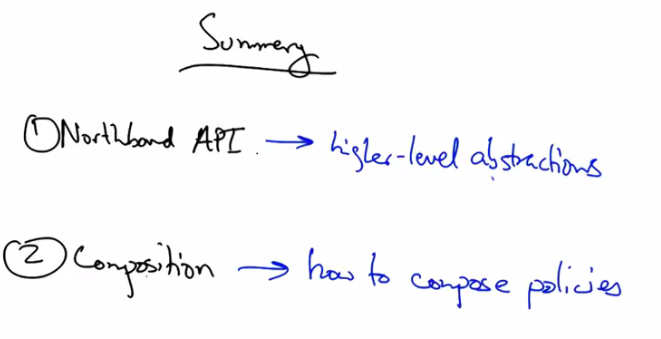 Summery
① Northbond API. → higher-level abstractions
② Composition → how to compose policies